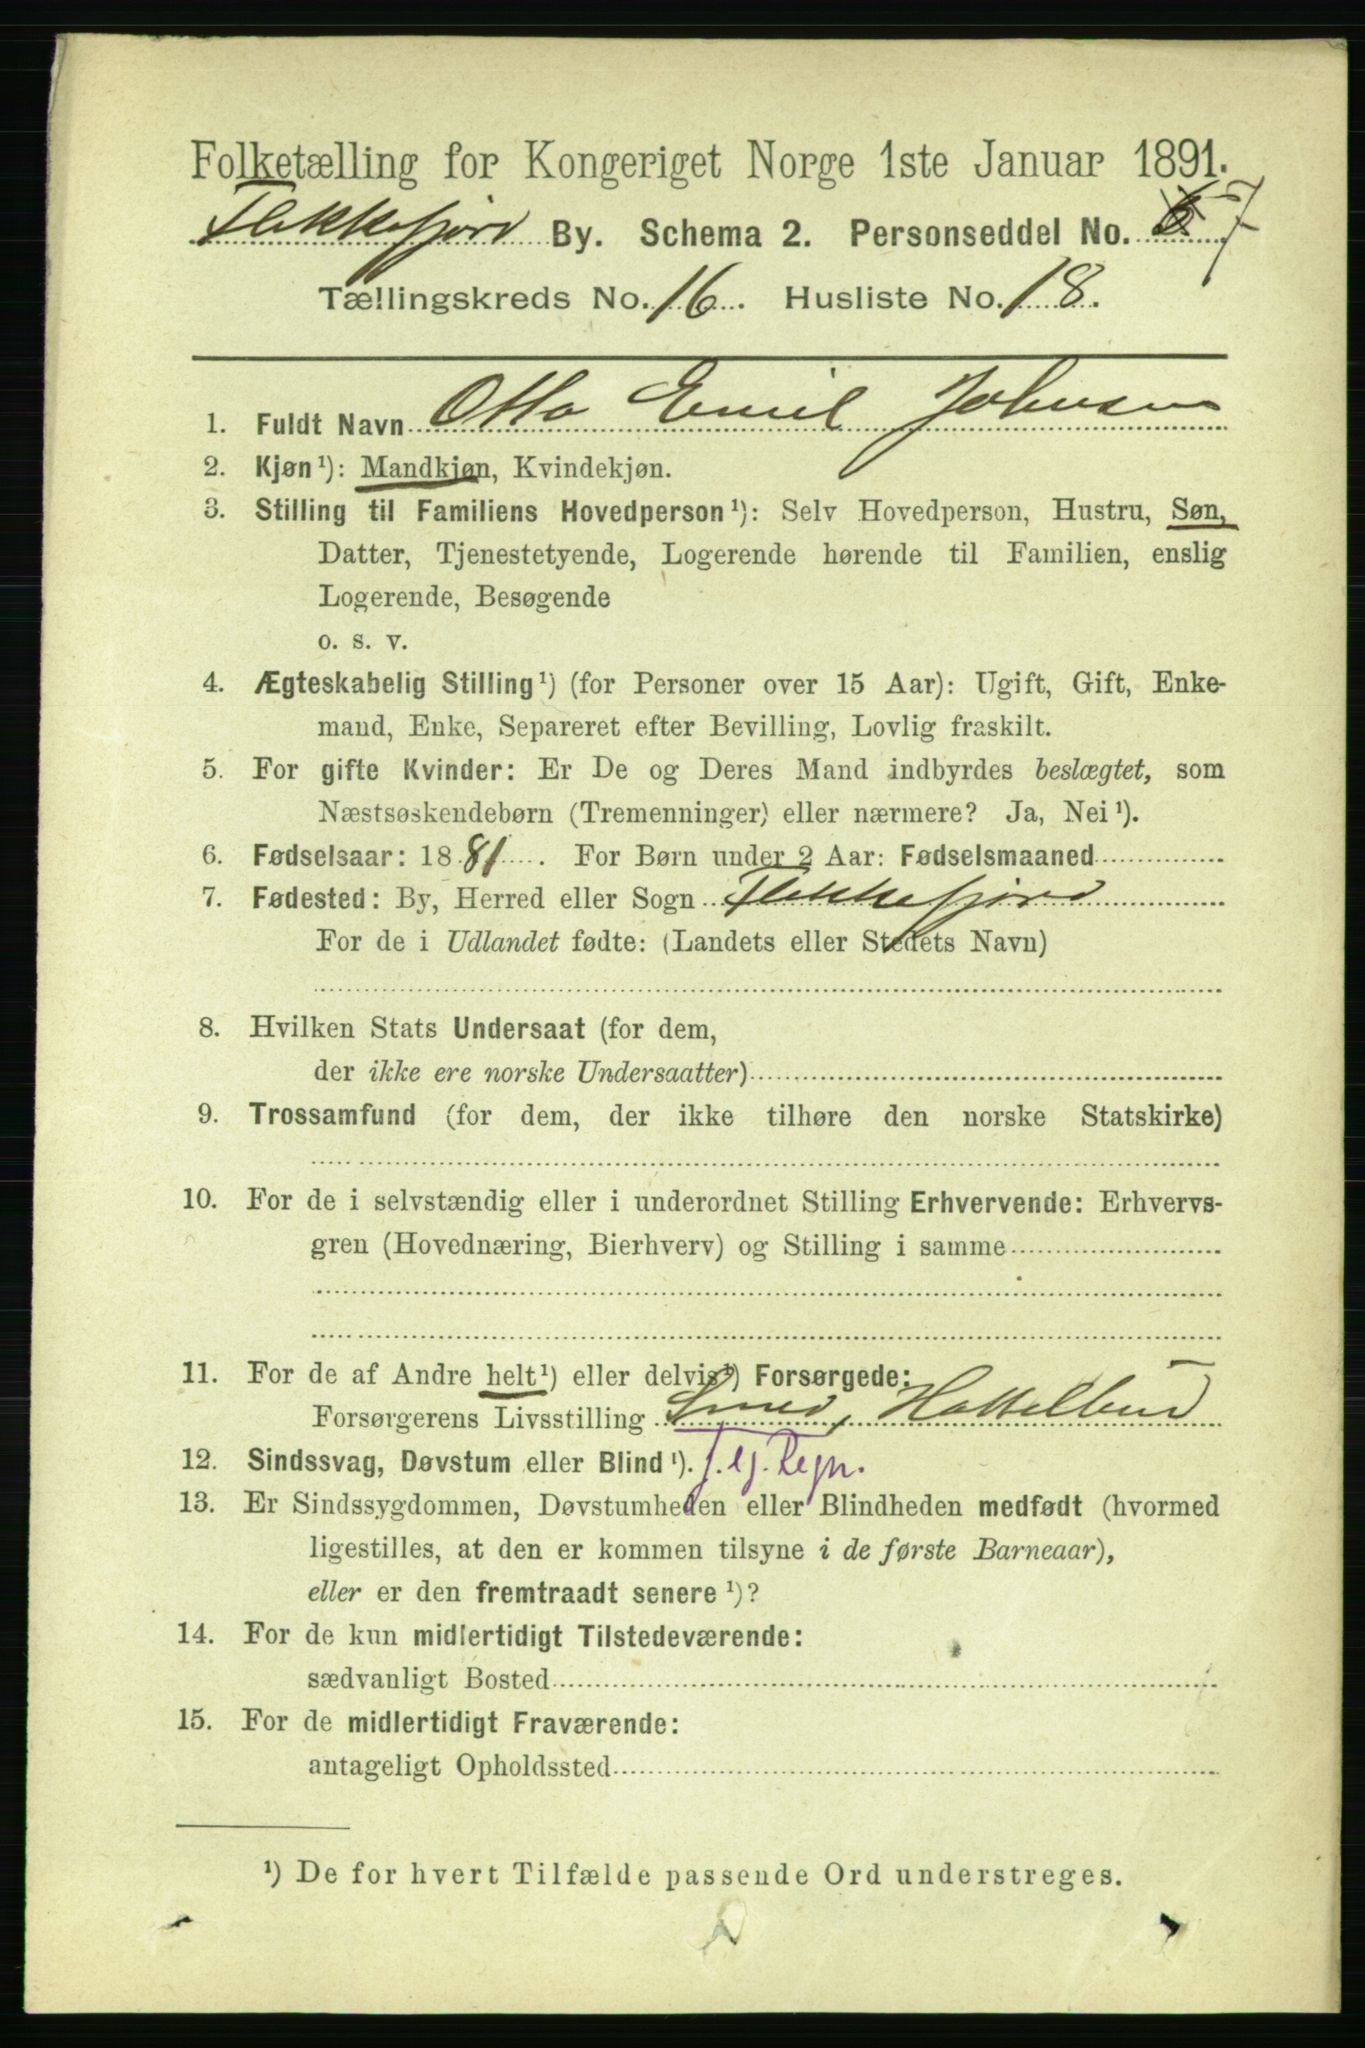 Folketælling for Kongeriget Norge 1ste Januar 1891.
Flekkefjord By. Schema 2. Personseddel No. 6 7
Tællingskreds No. 16. Husliste No. 18.
1. Fuldt Navn Otto Emil Johnsen
2. Kjøn ¹): Mandkjøn, Kvindekjøn.
3. Stilling til Familiens Hovedperson ¹): Selv Hovedperson, Hustru, Søn,
Datter, Tjenestetyende, Logerende hørende til Familien, enslig
Logerende, Besøgende
o. s. v.
4. Ægteskabelig Stilling ¹) (for Personer over 15 Aar): Ugift, Gift, Enke-
mand, Enke, Separeret efter Bevilling, Lovlig fraskilt.
5. For gifte Kvinder: Er De og Deres Mand indbyrdes beslægtet, som
Næstsøskendebørn (Tremenninger) eller nærmere? Ja, Nei ¹).
6. Fødselsaar: 1881. For Børn under 2 Aar: Fødselsmaaned
7. Fødested: By, Herred eller Sogn Flekkefjord
For de i Udlandet fødte: (Landets eller Stedets Navn)
8. Hvilken Stats Undersaat (for dem,
der ikke ere norske Undersaatter)
9. Trossamfund (for dem, der ikke tilhøre den norske Statskirke)
10. For de i selvstændig eller i underordnet Stilling Erhvervende: Erhvervs-
gren (Hovednæring, Bierhverv) og Stilling i samme
11. For de af Andre helt ¹) eller delvis ¹) Forsørgede:
Forsørgerens Livsstilling Smed,
12. Sindssvag, Døvstum eller Blind ¹).
13. Er Sindssygdommen, Døvstumheden eller Blindheden medfødt (hvormed
ligestilles, at den er kommen tilsyne i de første Barneaar),
eller er den fremtraadt senere ¹)?
14. For de kun midlertidigt Tilstedeværende:
sædvanligt Bosted
15. For de midlertidigt Fraværende:
antageligt Opholdssted
¹) De for hvert Tilfælde passende Ord understreges.